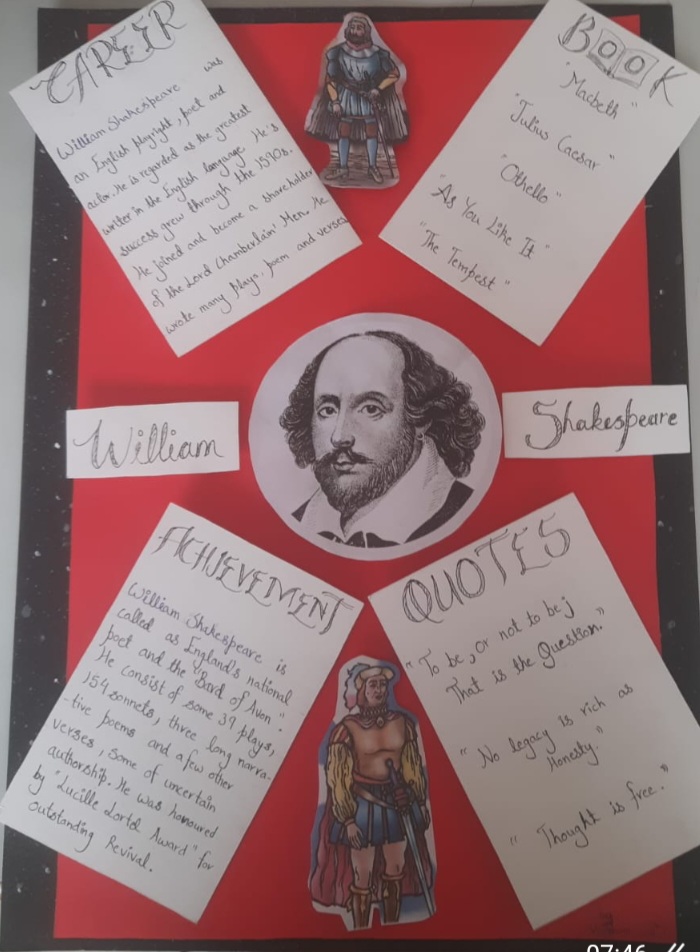 CAREER
William Shakespeare was
an English playright, poet and
actor. He is regarded as the greatest
writer in the English language. He's
success grew through the 1590s.
He joined and become a shareholder
of the Lord Chamberlain' Men. He
wrote many plays, poem and verses
BOOK
"Macbeth"
"Julius Caesar"
"Othello"
"As You Like It"
"The Tempest"
William
Shakespeare
ACHIEVEMENT
William Shakespeare is
called as England's national
poet and the "Bard of Avon".
He consist of some 39 plays,
154 sonnets, three long narra-
-tive poems and a few other
verses, some of uncertain
authorship. He was honoured
by "Lucille Lortel Award" for
outstanding Revival.
QUOTES
"To be, or not to be;
That is the Question."
"No legacy is rich as
Honesty."
"Thought is free."